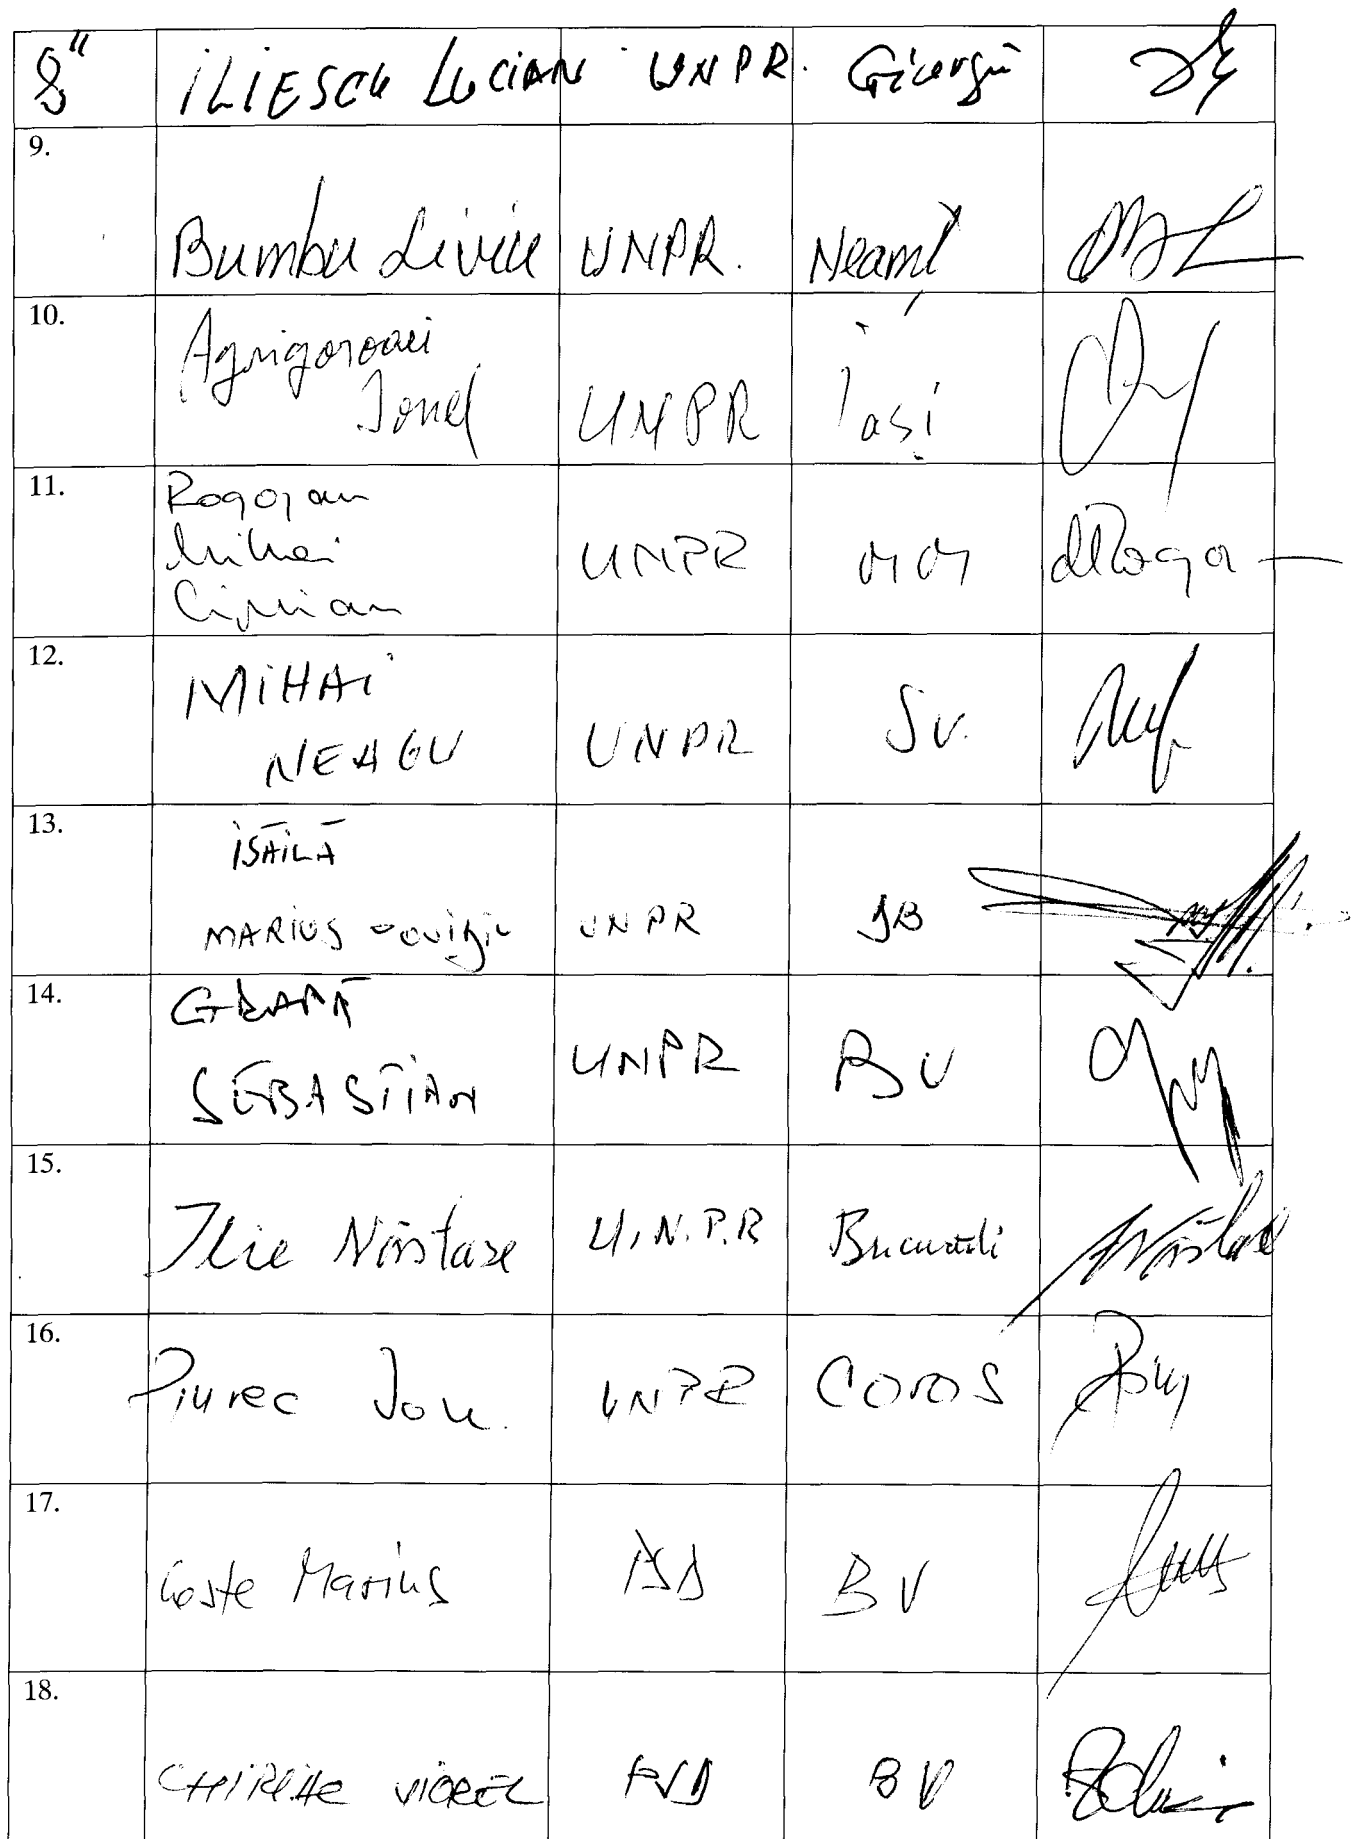 8" ILIESCU LUCIAN UNPR. Giurgiu
9.
Bumbu Liviu UNPR. Neamț
10.
Agrigoroaei
Ionel UNPR Iași
11. Rogojan
Mihai UNPR MM
Ciprian
12.
MIHAI
NEAGU UNPR SV.
13.
ISĂILĂ
MARIUS - OVIDIU UNPR SB
14. GRAPĂ
SEBASTIAN UNPR BV
15.
Ilie Năstase U.N.P.R București Năstase
16.
Piurec Ion. UNPR
17.
Coste Marius PSD BV
18.
VIOREL PSD BV